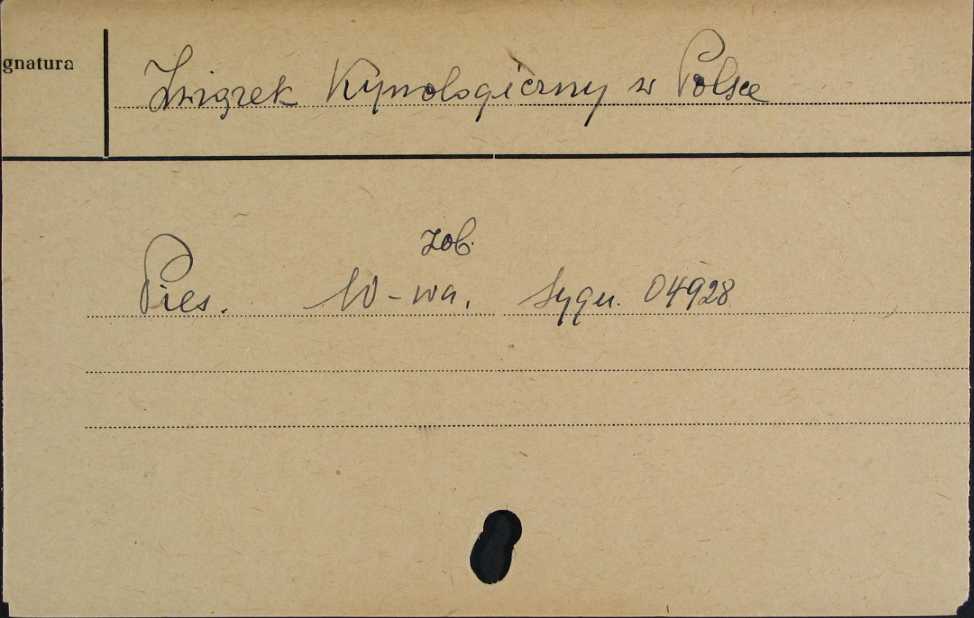 gnatura
Związek Kynologiczny w Polsce
zob.
Pies. W-wa. Sygn. 04928